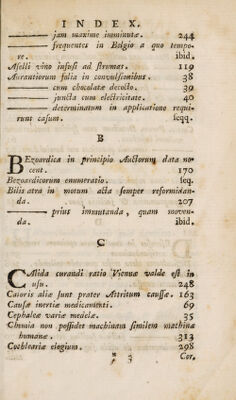 INDEX.
——— jam maxime imminutæ. 244
——— frequentes in Belgio a quo tempo-
re. ibid.
Aselli vino infusi ad strumas. 119
Aurantiorum folia in convulsionibus. 38
——— cum chocolatæ decocto. 39
——— juncta cum electricitate. 40
——— determinatum in applicatione requi-
runt casum. seqq.
B
BEzoardica in principio Auctorum data no-
cent. 170
Bezoardicorum enumeratio. seq.
Bilis atra in motum acta semper reformidan-
da. 207
——— prius immutanda, quam moven-
da. ibid.
C
CAlida curandi ratio Viennæ valde est in
usu. 248
Catoris aliæ sunt præter Attritum caussæ. 163
Causæ inertiæ medicamenti. 69
Cephaleæ variæ medelæ. 35
Chimia non possidet machinam similem machinæ
humanæ. 313
Cochleariæ elogium. 298
* 3 Cor.